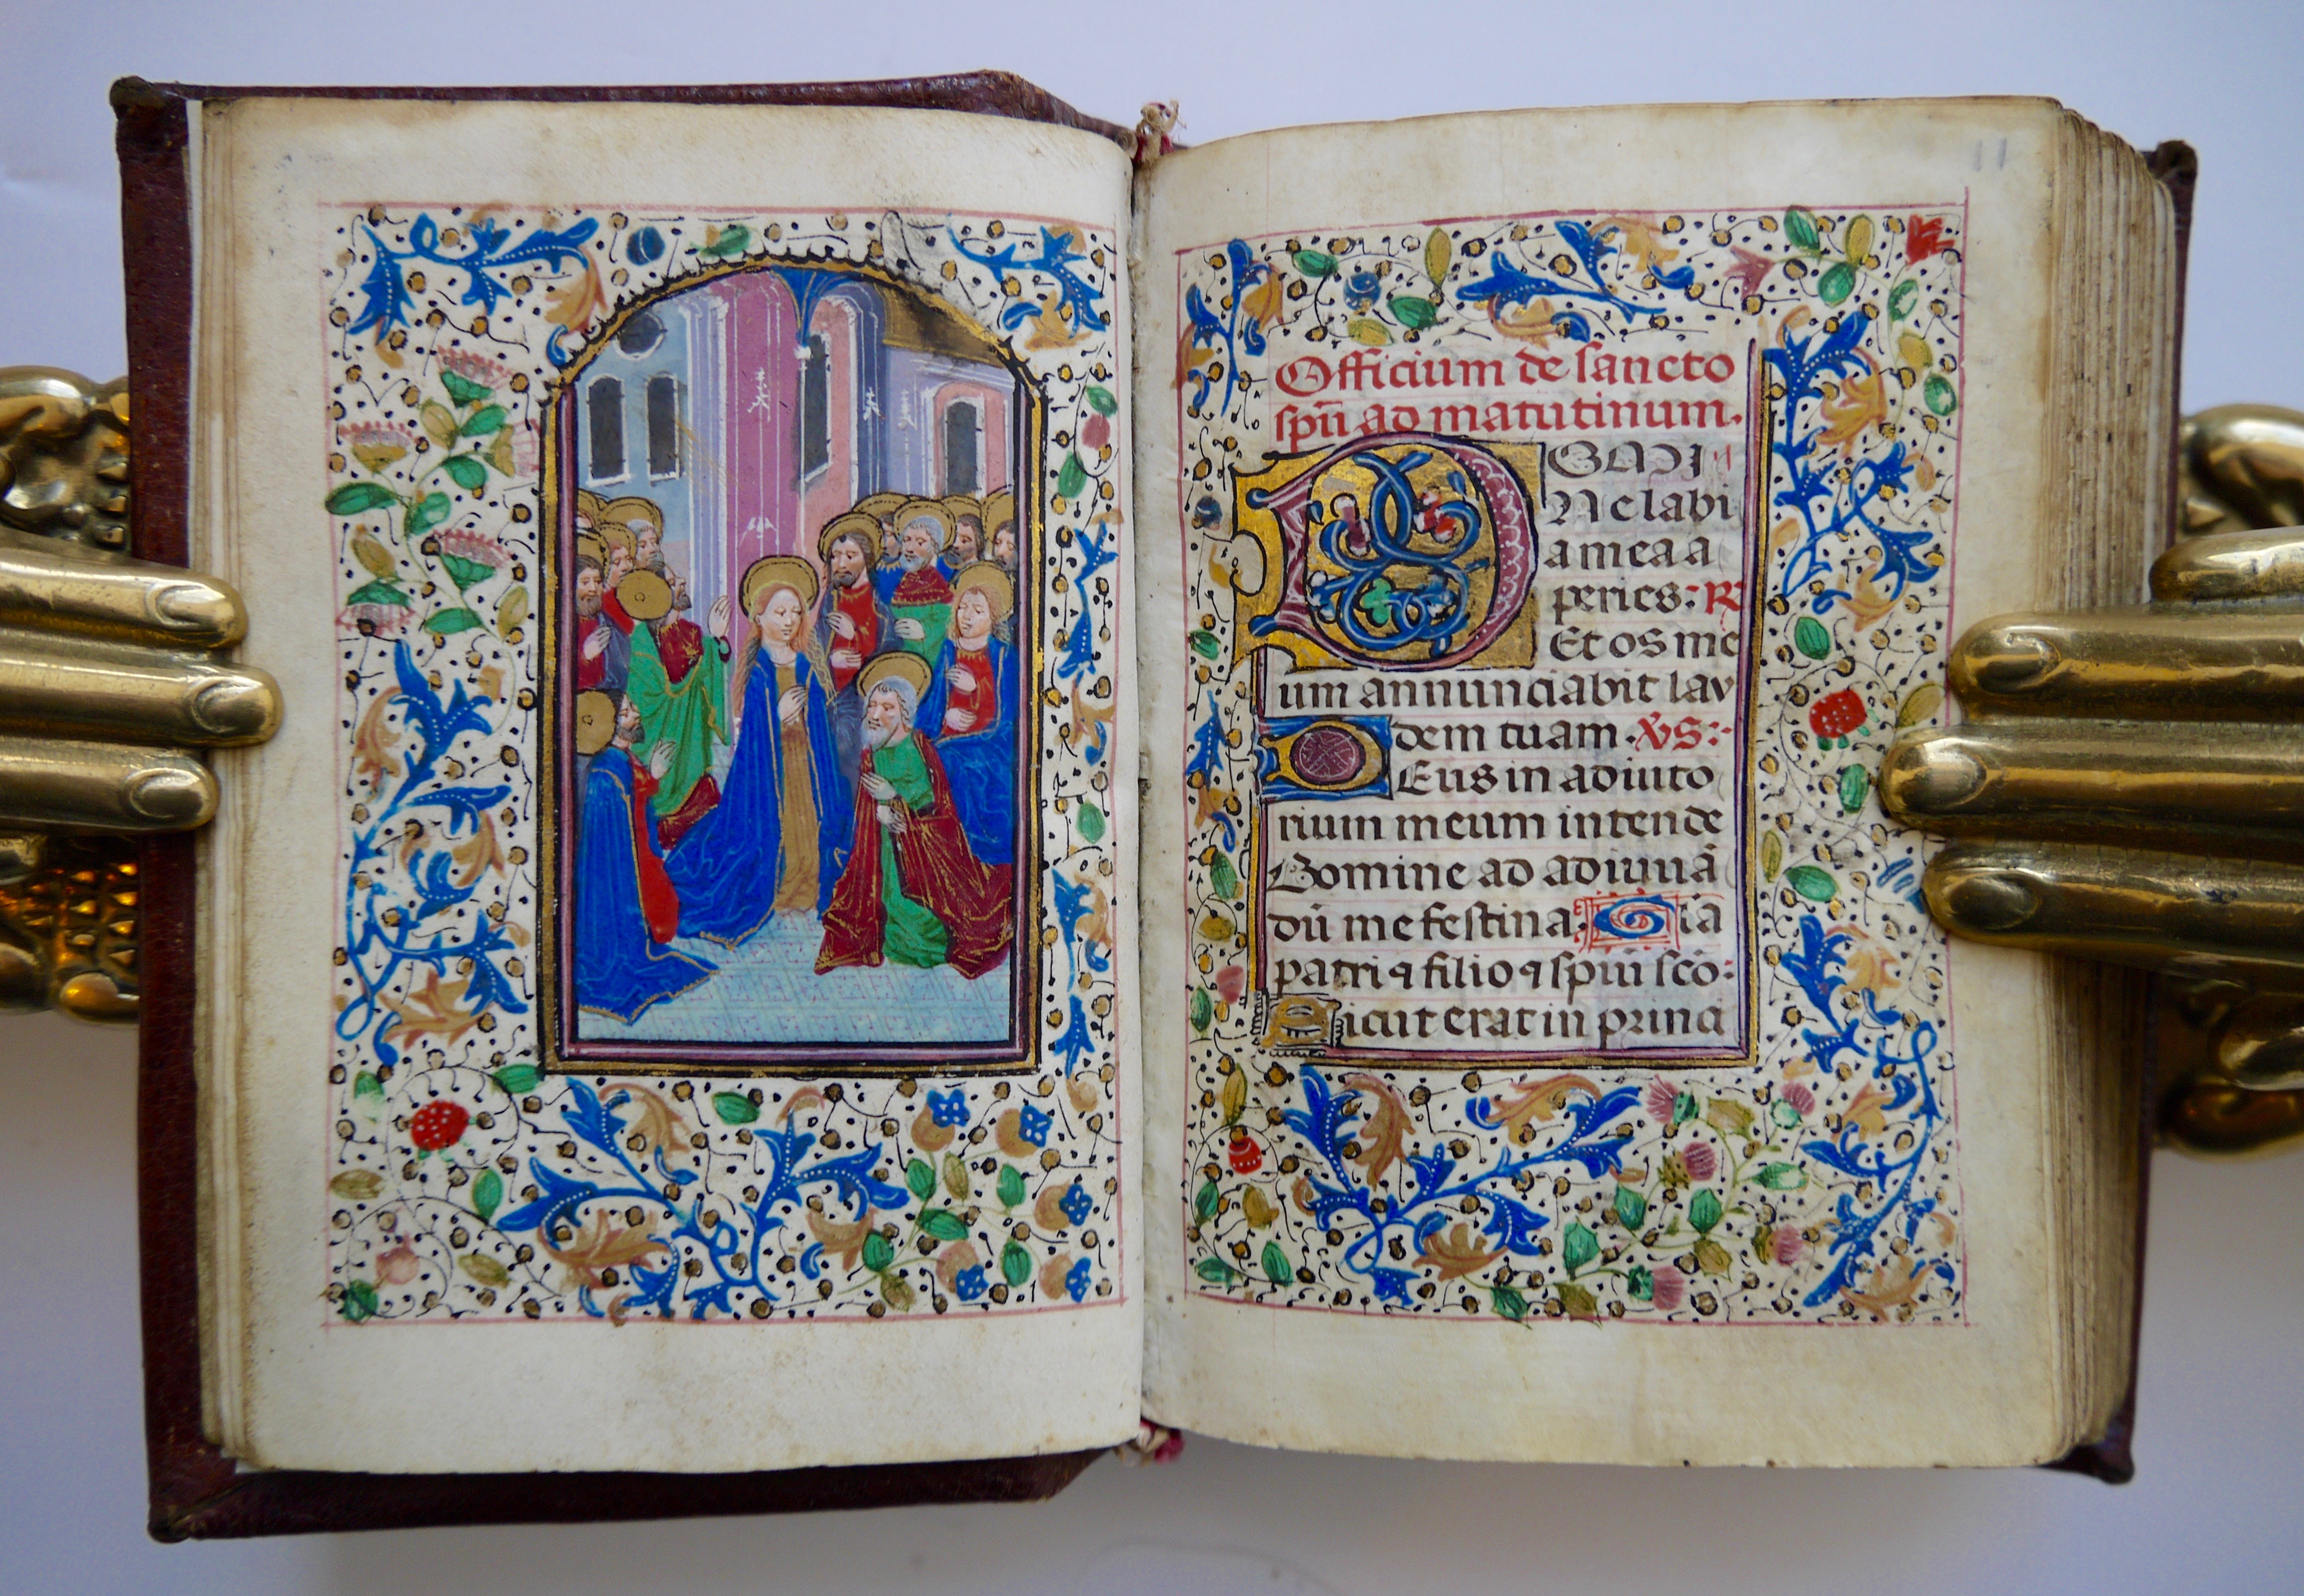 11
Officium de sancto
spũ ad matutinum.
DOMI
Ne labi
a mea a
peries: R
Et os me
um annunciabit lau
dem tuam. VS:
DEus in adiuto
rium meum intende
Domine ad adiuuã
dũ me festina. Glã
patri ⁊ filio ⁊ spũi scõ:
Sicut erat in princi